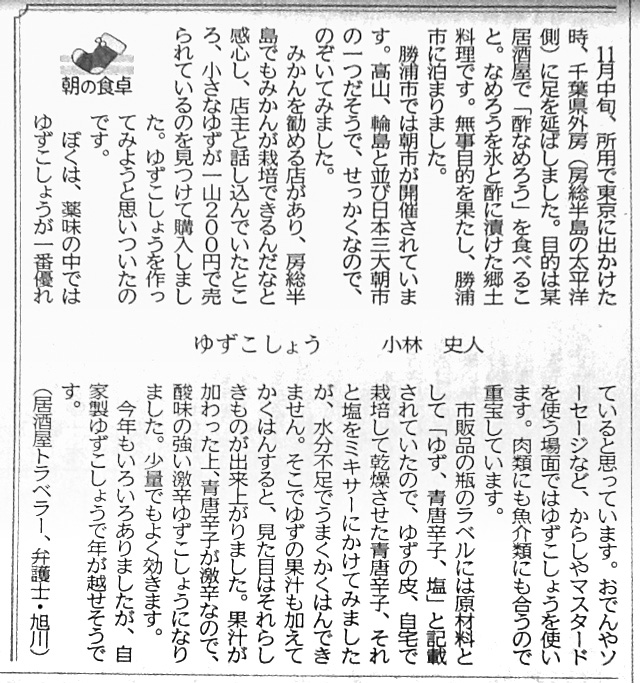 朝の食卓
ゆずこしょう　小林　史人
　11月中旬、所用で東京に出かけた
時、千葉県外房（房総半島の太平洋
側）に足を延ばしました。目的は某
居酒屋で「酢なめろう」を食べるこ
と。なめろうを氷と酢に漬けた郷土
料理です。無事目的を果たし、勝浦
市に泊まりました。
　勝浦市では朝市が開催されていま
す。高山、輪島と並び日本三大朝市
の一つだそうで、せっかくなので、
のぞいてみました。
　みかんを勧める店があり、房総半
島でもみかんが栽培できるんだなと
感心し、店主と話し込んでいたとこ
ろ、小さなゆずが一山200円で売
られているのを見つけて購入しまし
た。ゆずこしょうを作っ
てみようと思いついたの
です。
　ぼくは、薬味の中では
ゆずこしょうが一番優れ
ていると思っています。おでんやソ
ーセージなど、からしやマスタード
を使う場面ではゆずこしょうを使い
ます。肉類にも魚介類にも合うので
重宝しています。
　市販品の瓶のラベルには原材料と
して「ゆず、青唐辛子、塩」と記載
されていたので、ゆずの皮、自宅で
栽培して乾燥させた青唐辛子、それ
と塩をミキサーにかけてみました
が、水分不足でうまくかくはんでき
ません。そこでゆずの果汁も加えて
かくはんすると、見た目はそれらし
きものが出来上がりました。果汁が
加わった上、青唐辛子が激辛なので、
酸味の強い激辛ゆずこしょうになり
ました。少量でもよく効きます。
　今年もいろいろありましたが、自
家製ゆずこしょうで年が越せそうで
す。
（居酒屋トラベラー、弁護士・旭川）